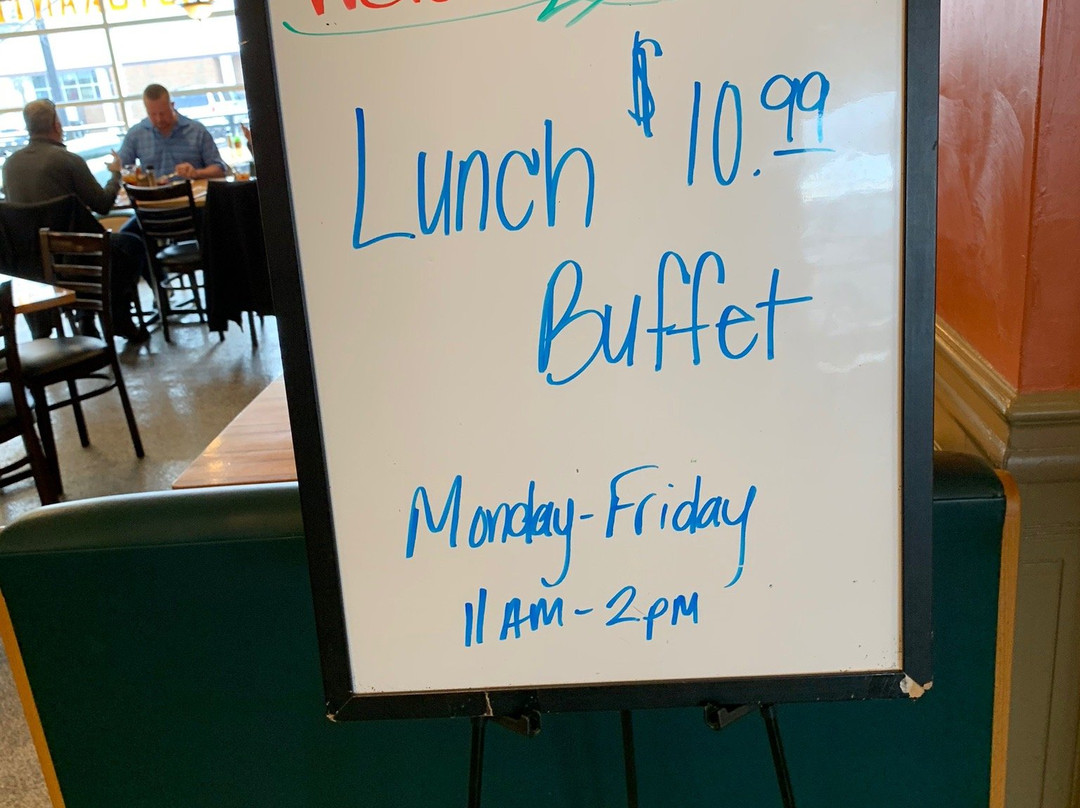 Lunch $10.99
Buffet
Monday-Friday
11AM-2PM